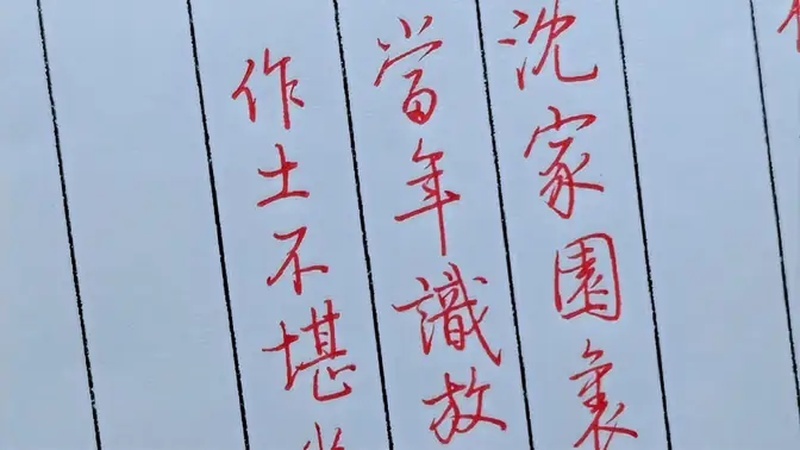 沈家園裏
當年識放
作土不堪